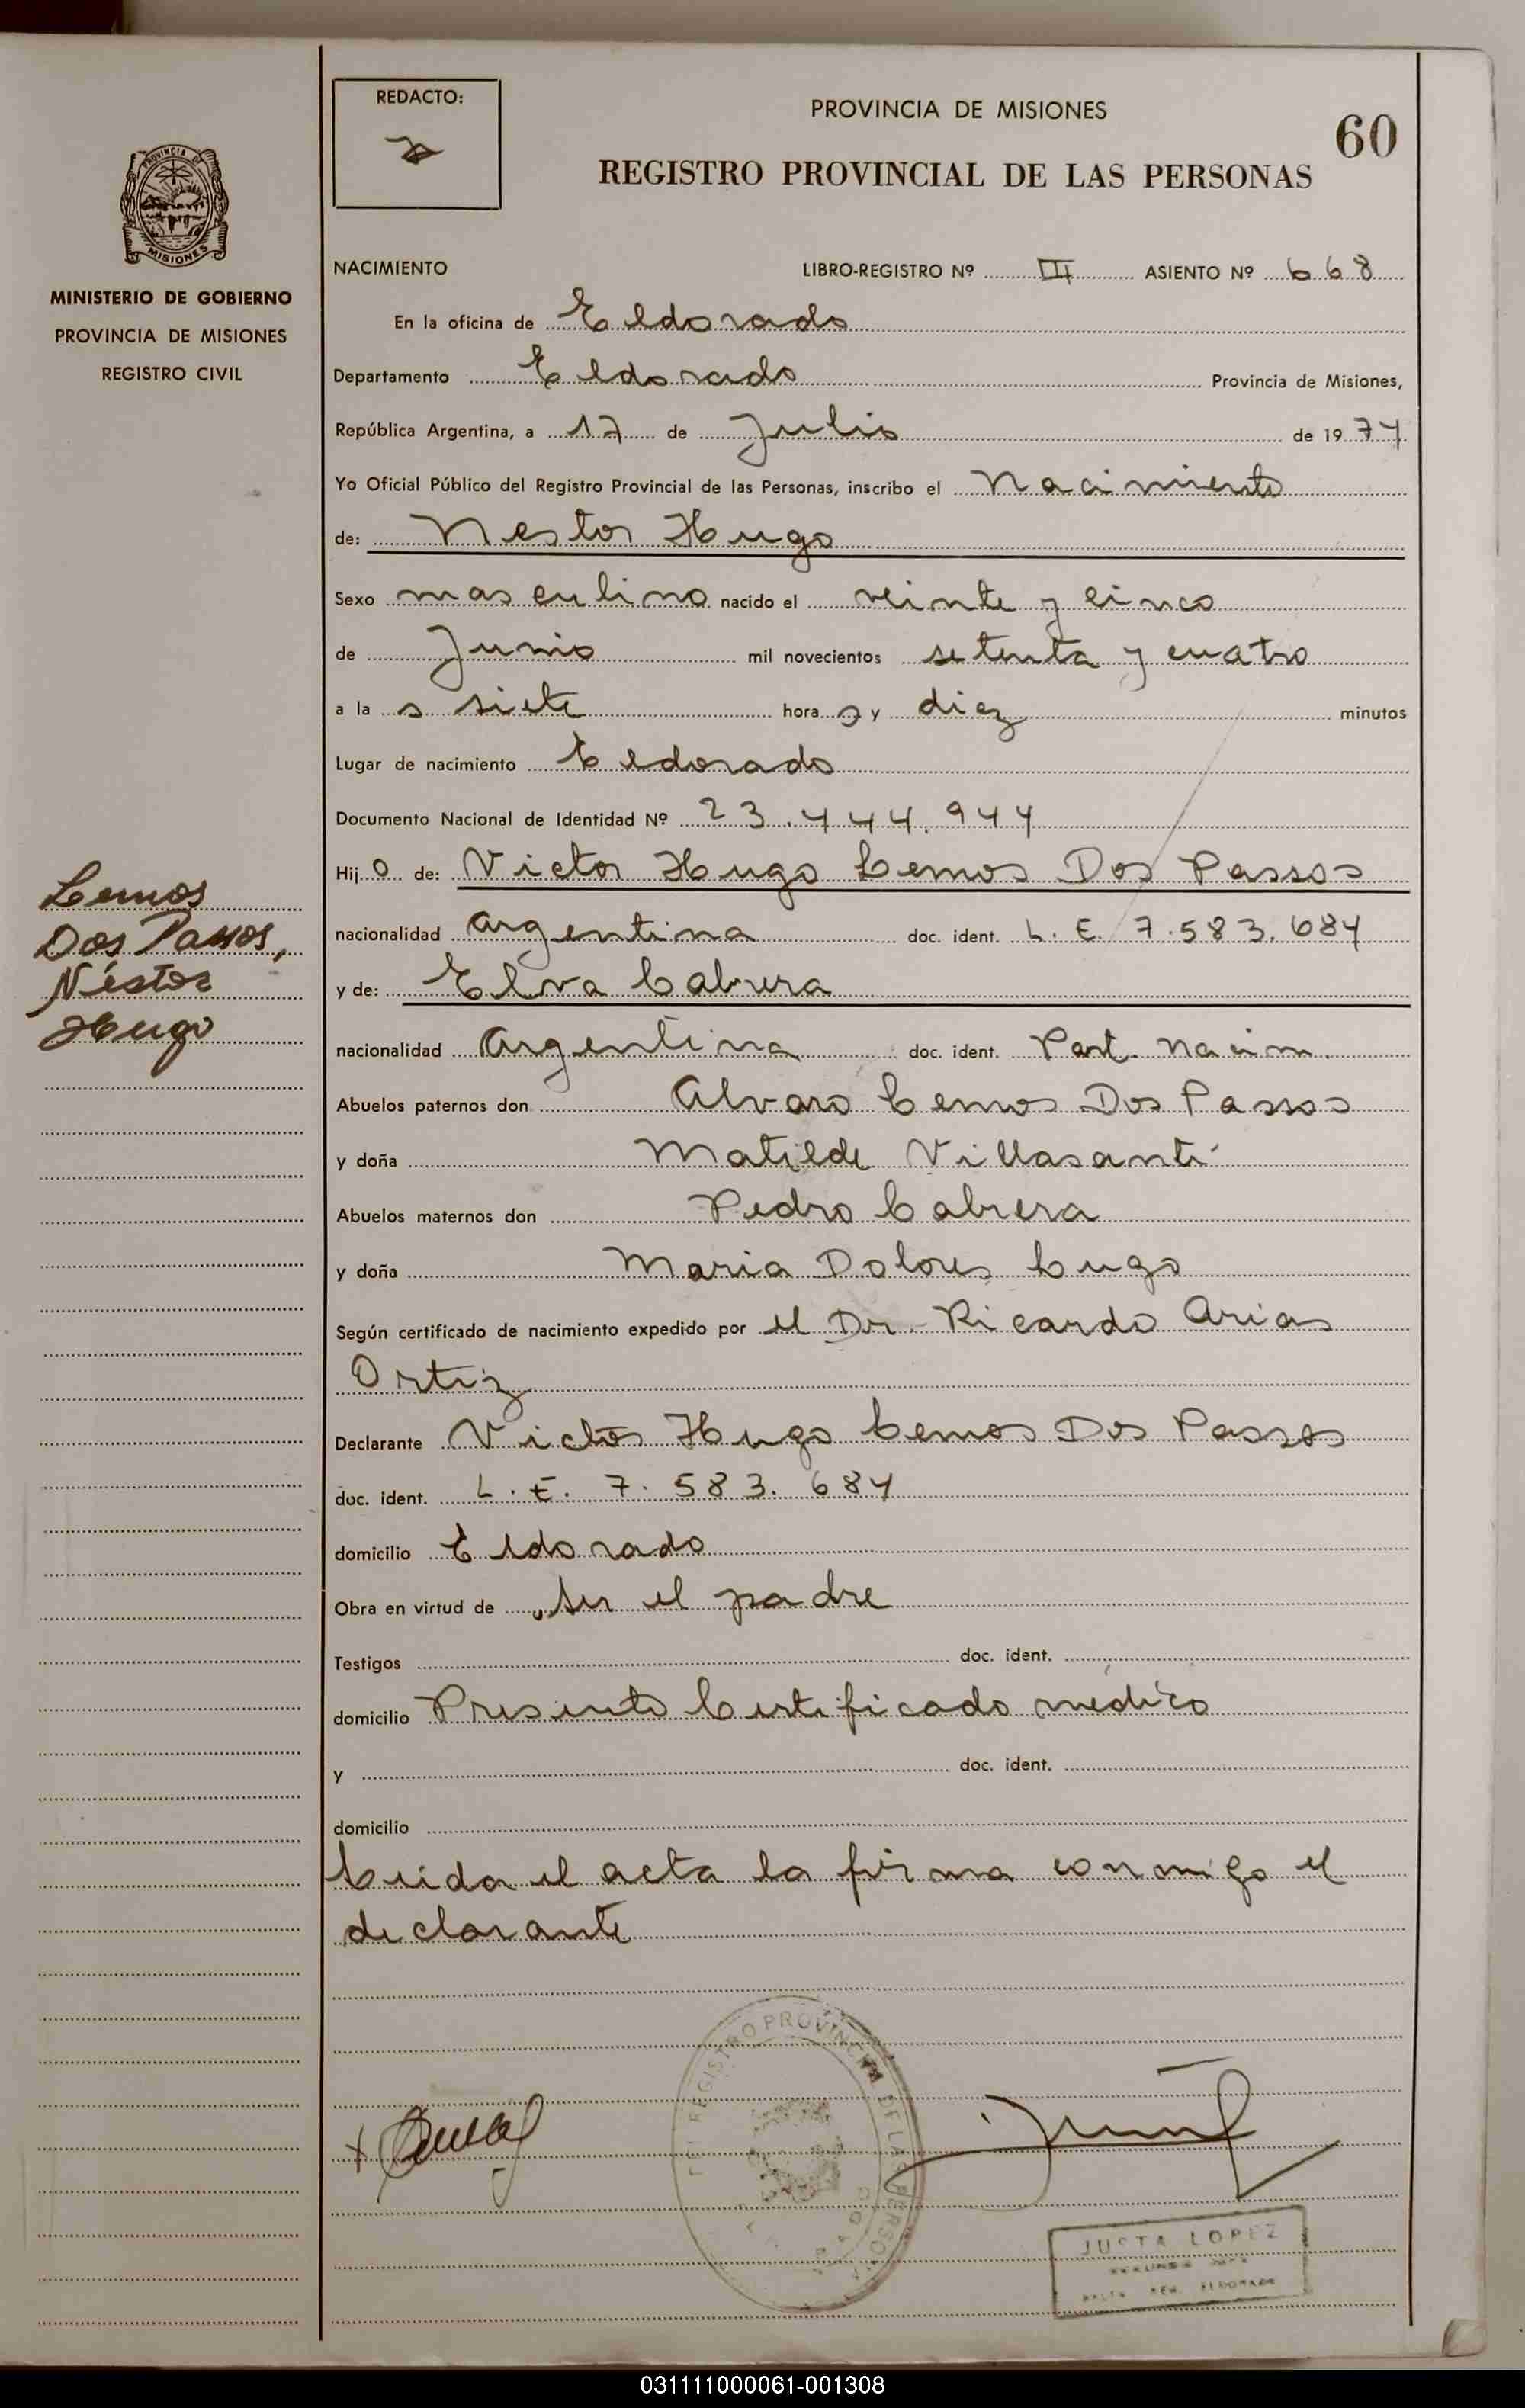 REDACTO:
PROVINCIA DE MISIONES
60
REGISTRO PROVINCIAL DE LAS PERSONAS
PROVINCIA DE
MISIONES
MINISTERIO DE GOBIERNO
PROVINCIA DE MISIONES
REGISTRO CIVIL
NACIMIENTO LIBRO-REGISTRO Nº III ASIENTO Nº 668
En la oficina de Eldorado
Departamento Eldorado Provincia de Misiones,
República Argentina, a 17 de Julio de 1974
Yo Oficial Público del Registro Provincial de las Personas, inscribo el Nacimiento
de: Nestor Hugo
Sexo masculino nacido el veinte y cinco
de Junio mil novecientos setenta y cuatro
a la s siete hora s y diez minutos
Lugar de nacimiento Eldorado
Documento Nacional de Identidad Nº 23.444.944
Hij o de: Victor Hugo Lemos Dos Passos
nacionalidad argentina doc. ident. L. E. 7.583.684
y de: Elva Cabrera
nacionalidad Argentina doc. ident. Part. Nacim.
Abuelos paternos don Alvaro Lemos Dos Passos
y doña Matilde Villasanti
Abuelos maternos don Pedro Cabrera
y doña Maria Dolores Lugo
Según certificado de nacimiento expedido por el Dr. Ricardo Arias
Ortiz
Declarante Victor Hugo Lemos Dos Passos
doc. ident. L. E. 7.583.684
domicilio Eldorado
Obra en virtud de ser el padre
Testigos doc. ident.
domicilio Presento Certificado médico
y doc. ident.
domicilio
Leida el acta la firma conmigo el
declarante
Lemos
Dos Passos,
Néstor
Hugo
REGISTRO PROVINCIAL DE LAS PERSONAS
JUSTA LOPEZ
031111000061-001308